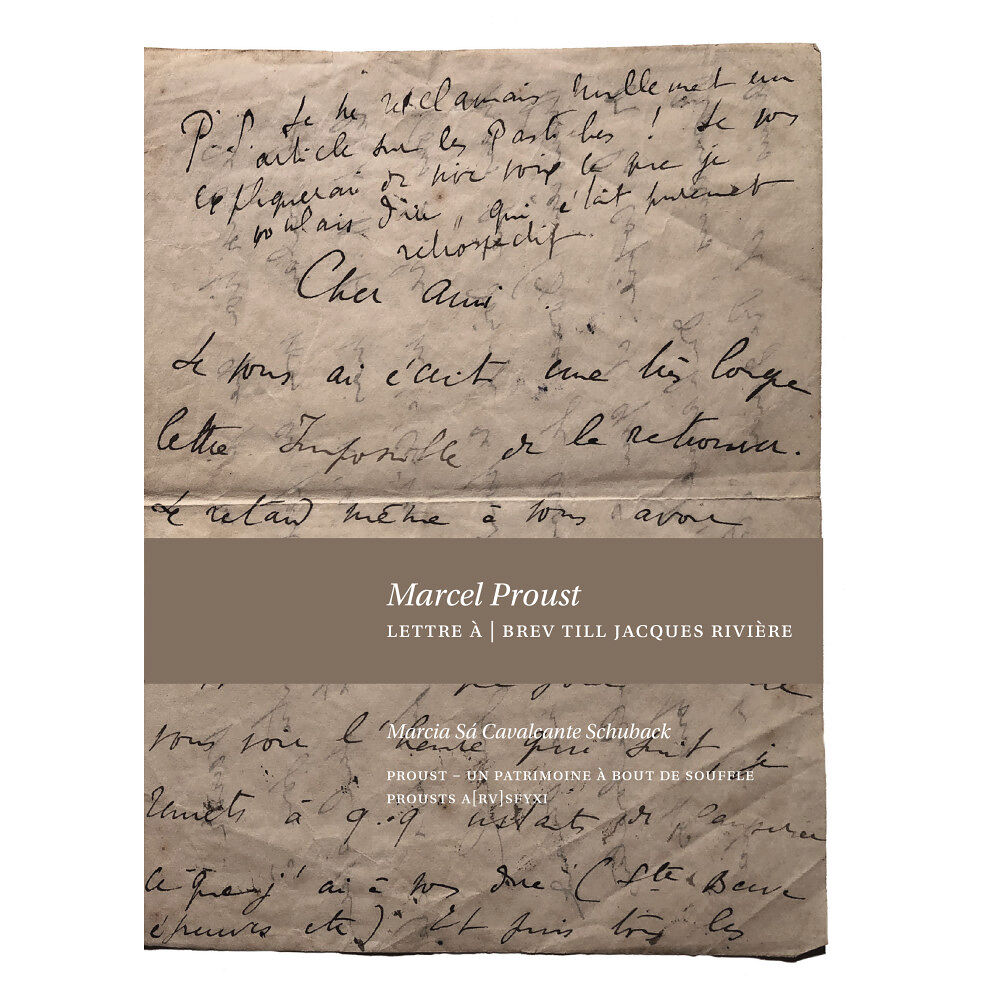 P.S. Je ne réclamais nullement un
article sur les Pastiches ! Je vous
expliquerai de vive voix ce que je
voulais dire, qui était purement
rétrospectif.
Cher ami
Je vous ai écrit une très longue
lettre Impossible de la retrouver.
Le retard même à vous avoir
Marcel Proust
LETTRE À | BREV TILL JACQUES RIVIÈRE
Márcia Sá Cavalcante Schuback
vous voir l'heure qui suit, je
PROUST – UN PATRIMOINE À BOUT DE SOUFFLE
PROUSTS A[RV]SFYXI
remets à q.q instants de
ce que j'ai à vous dire (Ste Beuve
épreuves etc) Et puis tous les